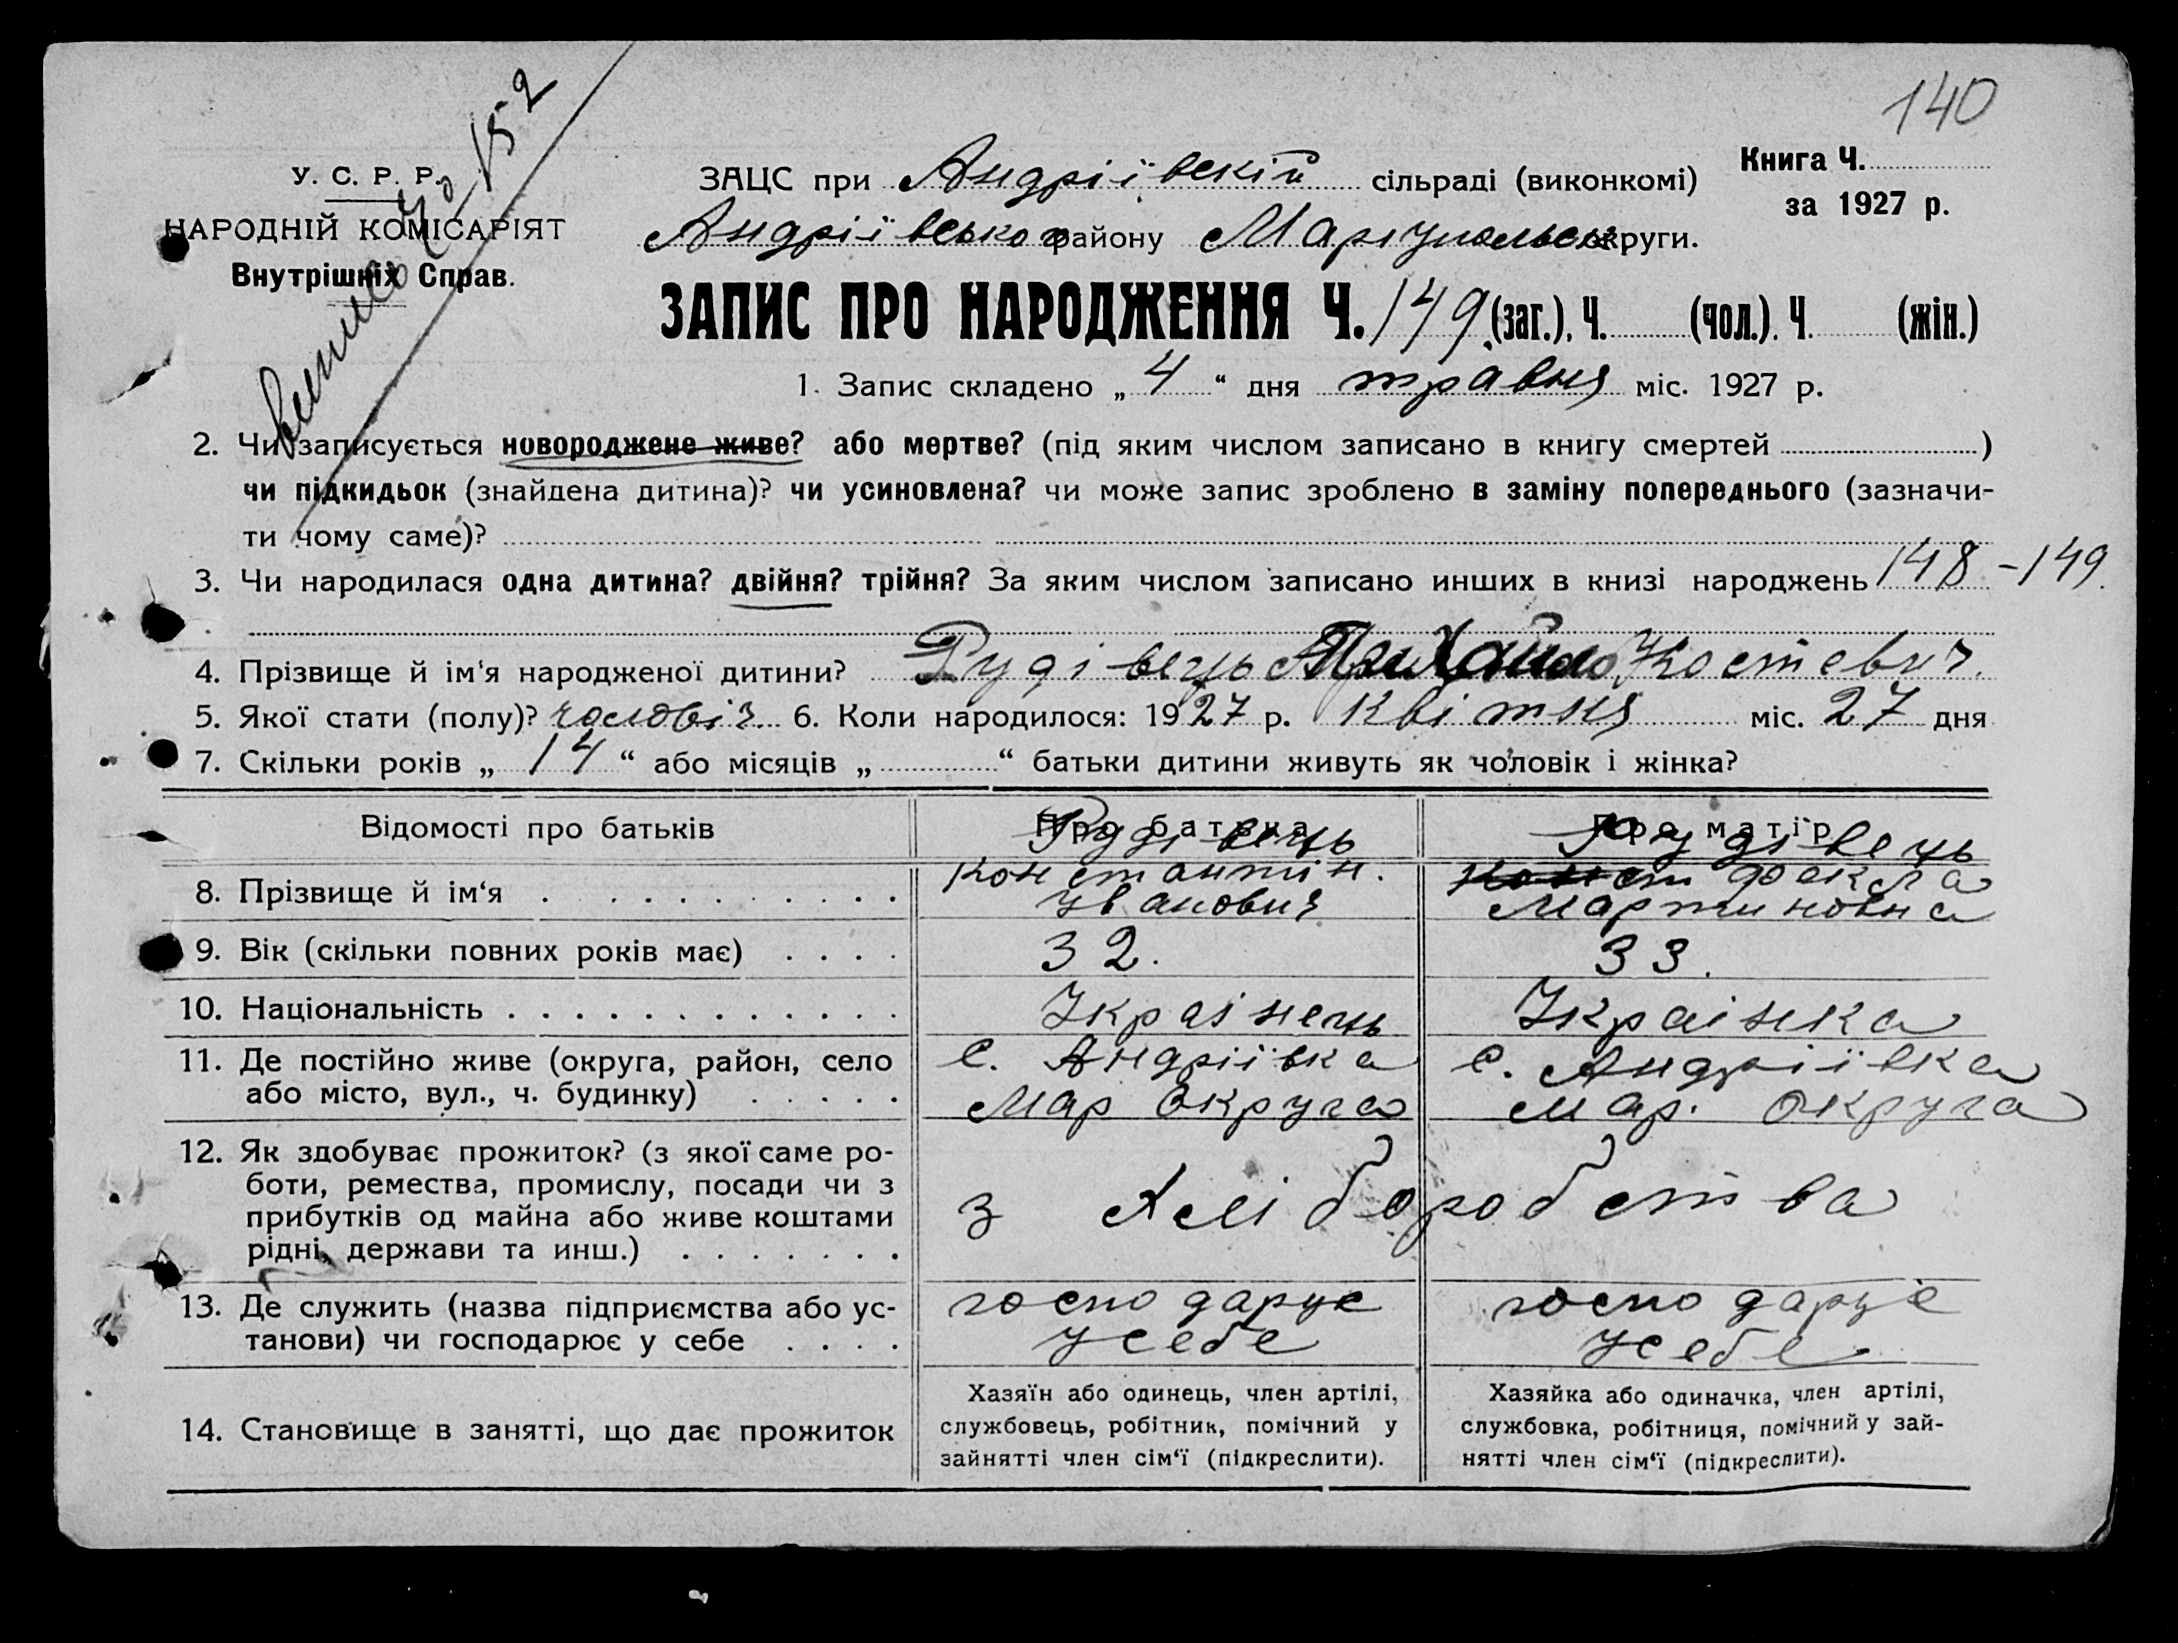 140
Виписано Ч 152
У. С. Р. Р.
НАРОДНІЙ КОМІСАРІЯТ
Внутрішніх Справ.
ЗАЦС при Андріївскій сільраді (виконкомі)
Книга Ч.
за 1927 р.
Андріівсько району Маріупольськ округи.
ЗАПИС ПРО НАРОДЖЕННЯ Ч. 149 (заг.), Ч. (чол.). Ч. (жін.)
1. Запис складено „ 4 “ дня травня міс. 1927 р.
2. Чи записується новороджене живе? або мертве? (під яким числом записано в книгу смертей )
чи підкидьок (знайдена дитина)? чи усиновлена? чи може запис зроблено в заміну попереднього (зазначи-
ти чому саме)?
3. Чи народилася одна дитина? двійня? трійня? За яким числом записано инших в книзі народжень 148-149.
4. Прізвище й ім‘я народженої дитини? Рудівець Михайло Костевич.
5. Якої стати (полу)? чоловіч 6. Коли народилося: 1927 р. Квітня міс. 27 дня
7. Скільки років „ 14 “ або місяців „ “ батьки дитини живуть як чоловік і жінка?
Відомості про батьків
Про батька
Про матір
8. Прізвище й ім‘я
Рудівець
Констянтін.
Іванович
Рудівець
Конст Фекла
Мартиновна
9. Вік (скільки повних років має)
32.
33.
10. Національність
Украінець
Украінка
11. Де постійно живе (округа, район, село
або місто, вул., ч. будинку)
с. Андріївка
Мар Округа
с. Андріївка
Мар. Округа
12. Як здобуває прожиток? (з якої саме ро-
боти, ремества, промислу, посади чи з
прибутків од майна або живе коштами
рідні, держави та инш.)
з хліборобства
13. Де служить (назва підприємства або ус-
танови) чи господарює у себе
господарує
у себе
господарує
у себе
14. Становище в занятті, що дає прожиток
Хазяїн або одинець, член артілі,
службовець, робітник, помічний у
зайнятті член сім‘ї (підкреслити).
Хазяйка або одиначка, член артілі,
службовка, робітниця, помічний у зай-
нятті член сім‘ї (підкреслити).